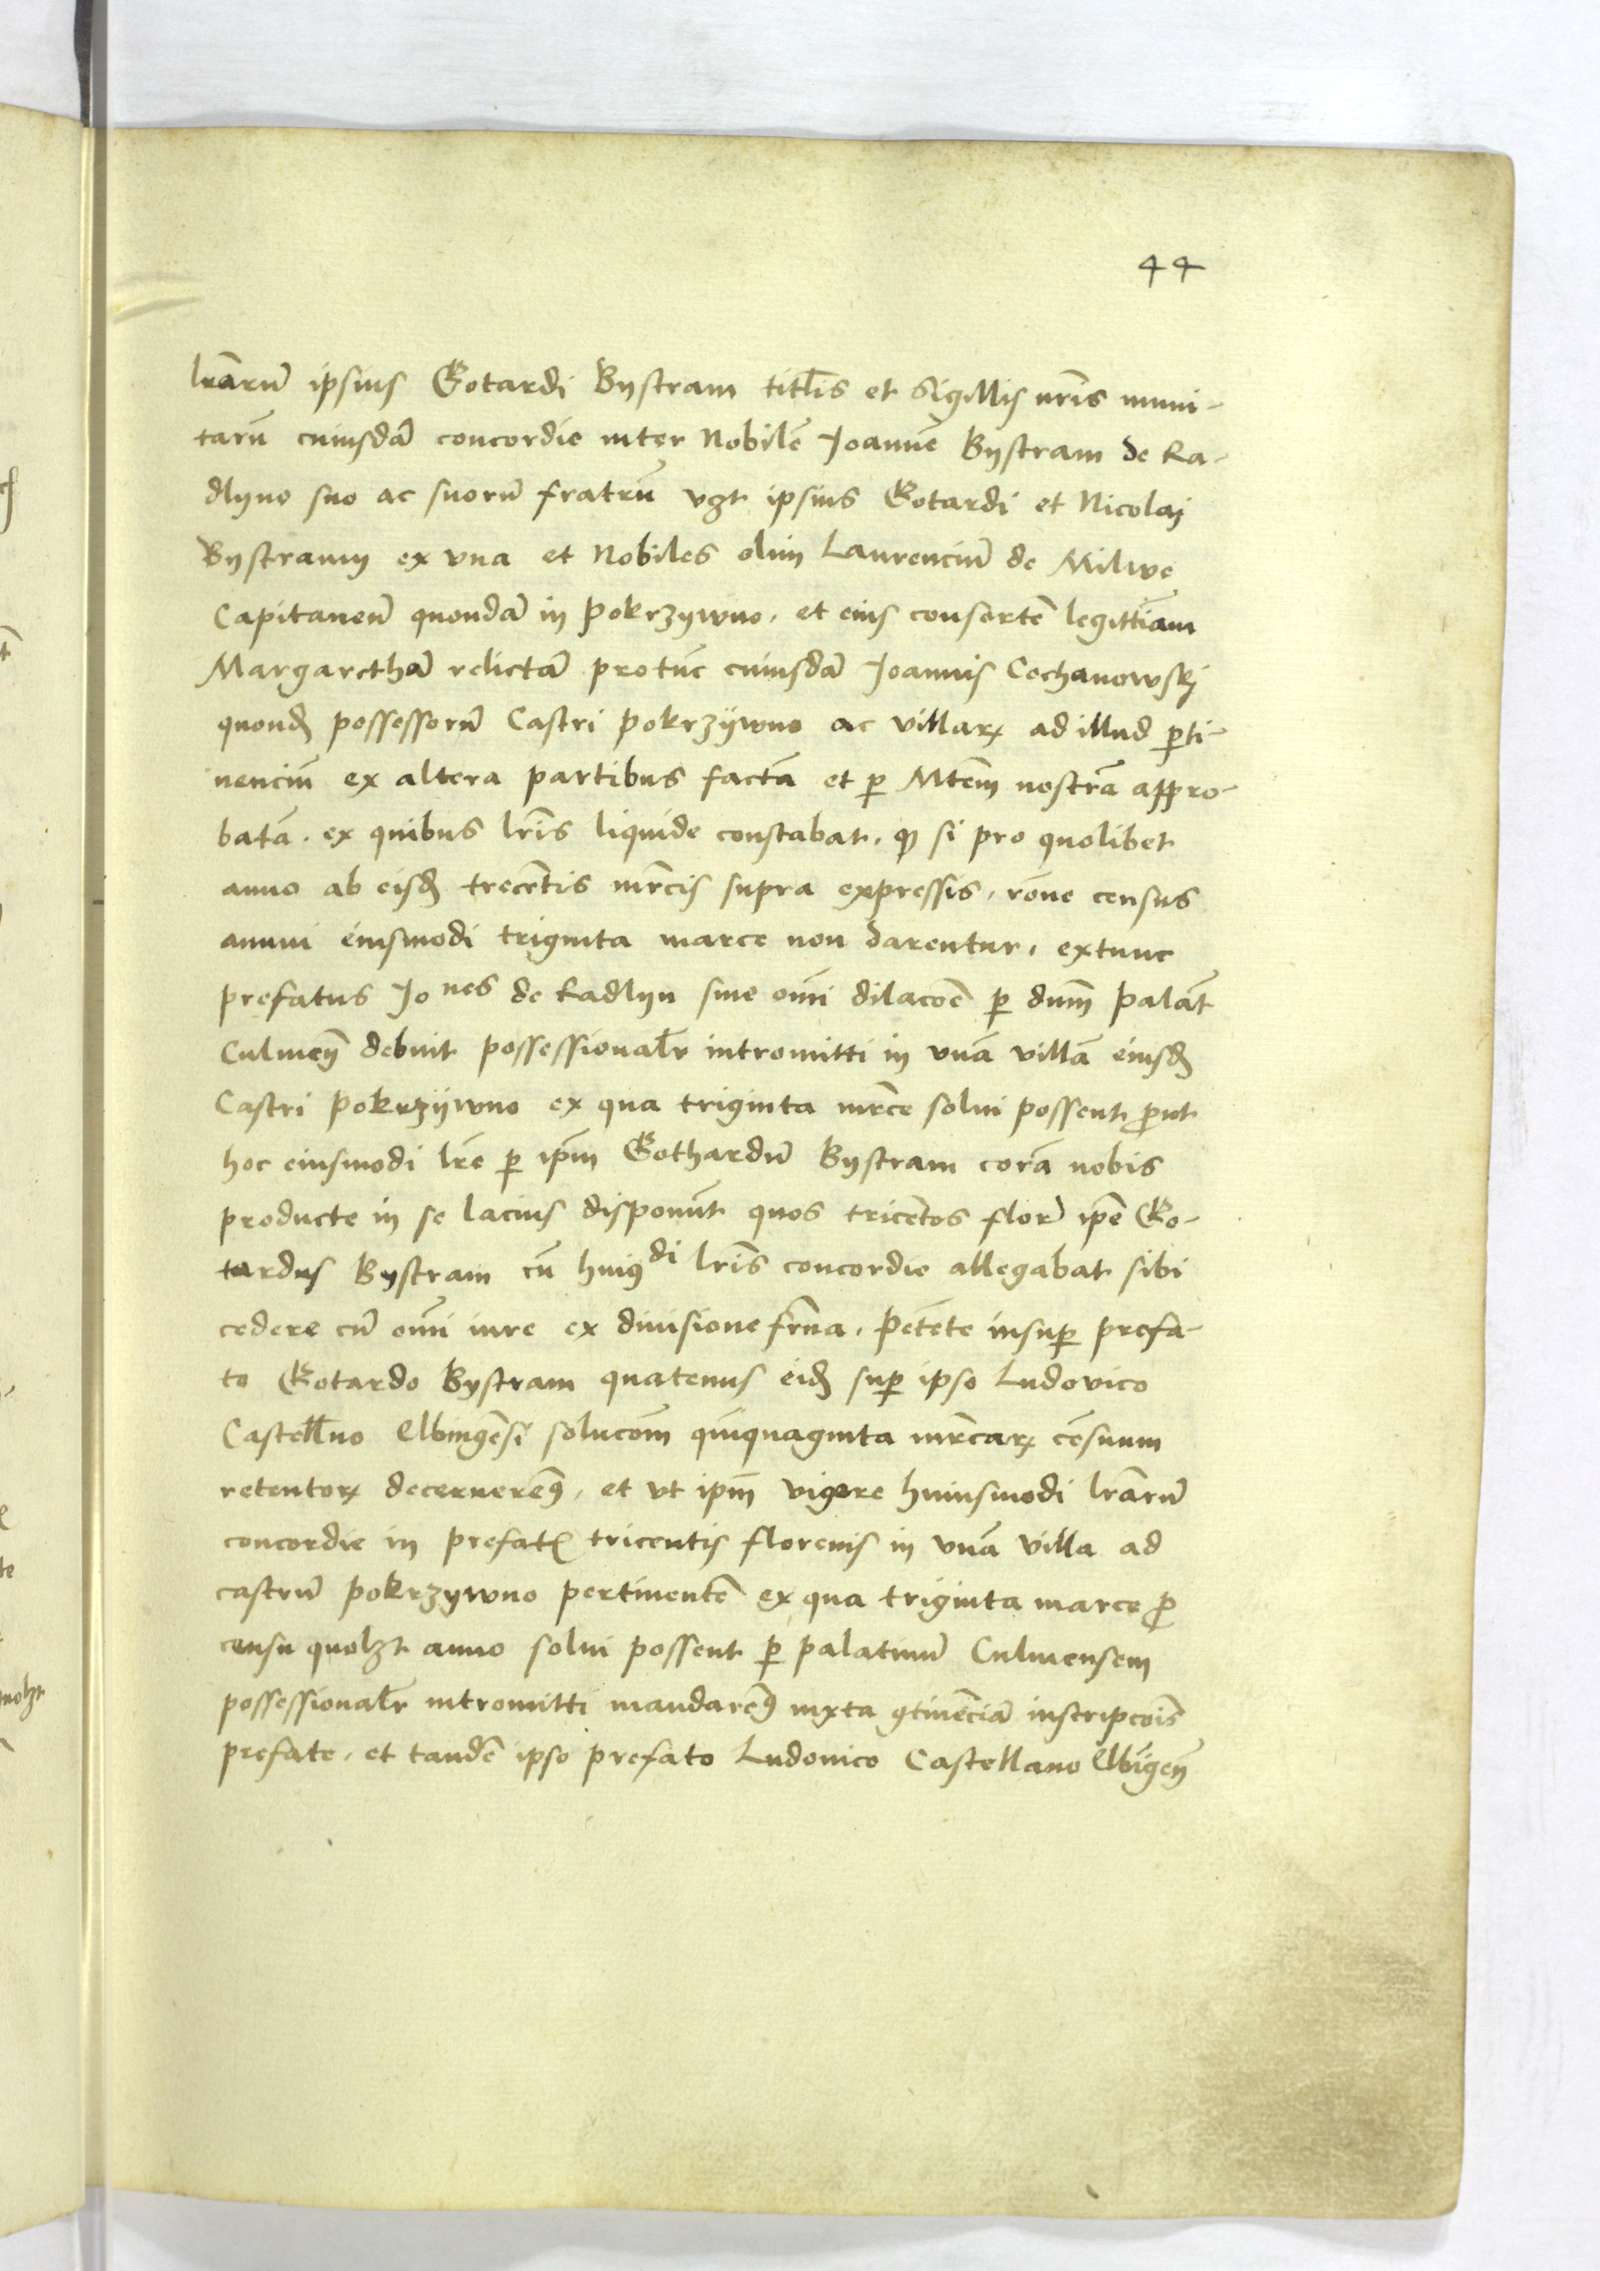 44
lr̃arũ ipsius Gotardi Bystram titl̃is et sigillis nr̃is muni-
tarũ cuiusdã concordie inter Nobilẽ Joannẽ Bystram de Ra-
dlyno suo ac suorũ fratrũ vꝫt ipsius Gotardi et Nicolaj
Bystramy ex vna et Nobiles olim Laurenciũ de Milwe
Capitaneũ quondã in Pokrzywno, et eius consortẽ legitt̃iam
Margarethã relictã protũc cuiusdã Joannis Cochanowskj
quond̃ possessorũ Castri Pokrzÿwno ac villarꝝ ad illud ꝑti-
nenciũ ex altera partibus factã et ꝑ Mtẽm nostrã appro-
batã. ex quibus lr̃is liquide constabat. ꝙ si pro quolibet
anno ab eisd̃ trecẽtis mr̃cis supra expressis, rõne census
annui eiusmodi triginta marce non darentur, extunc
prefatus Joñes de Radlyn sine om̃i dilacõe ꝑ dnm̃ Palãt
Culmeñ debuit possessionalr̃ intromitti in vnã villã eiusd̃
Castri Pokrzÿwno ex qua triginta mr̃ce solui possent ꝓut
hoc eiusmodi lr̃e ꝑ ip̃m Gothardũ Bystram corã nobis
producte in se lacius disponũt quos tricẽtos flor̃ ip̃e Go-
tardus Bystram cũ huiꝰdi lr̃is concordie allegabat sibi
cedere cũ om̃i iure ex diuisione fr̃na. Petẽte insuꝑ prefa-
to Gotardo Bystram quatenus eid̃ suꝑ ipso Ludovico
Castell̃no Elbingẽsi solucõm quĩquaginta mr̃carꝝ cẽsuum
retentorꝝ decernerẽꝰ, et vt ip̃m vigore huiusmodi lr̃arũ
concordie in prefatꝭ tricentis florenis in vnã villa ad
castrũ Pokrzywno pertinentẽ ex qua triginta marce ꝓ
censu quolꝫt anno solui possent ꝑ Palatinũ Culmensem
possessionalr̃ intromitti mandarẽꝰ iuxta ꝯtinẽciã inscripcõis
prefate, et tandẽ ipso prefato Ludouico Castellano Elbĩgeñ